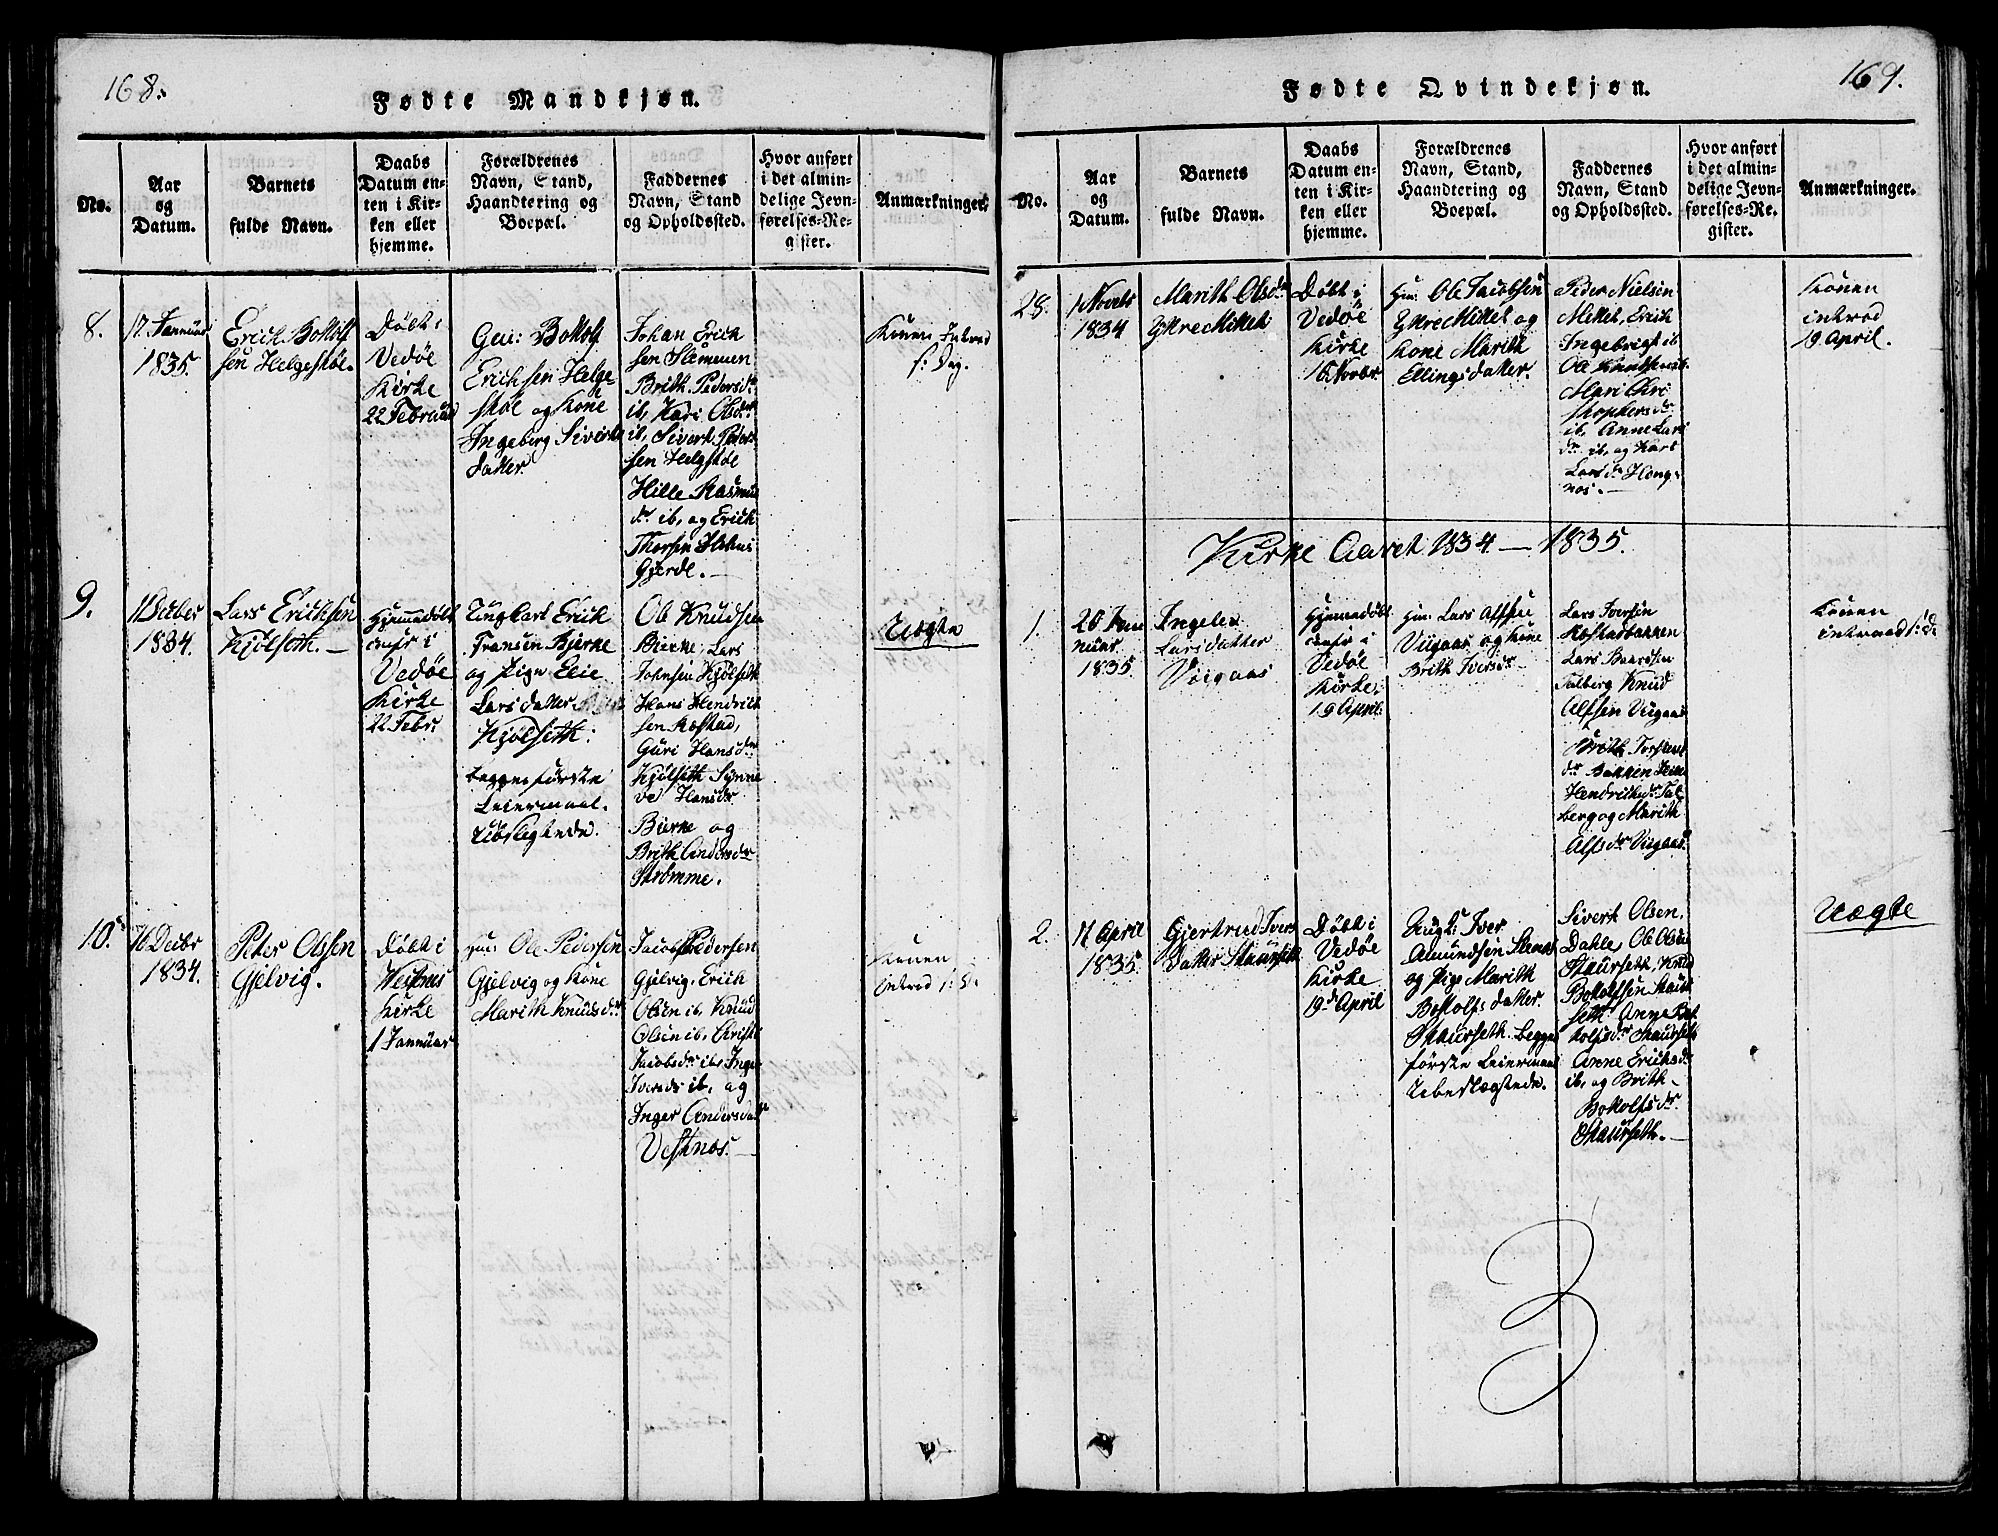 168.
Fødte Mandkjøn.
No.
Aar
og
Datum.
Barnets
fulde Navn.
Daabs
Datum en-
ten i Kir-
ken eller
hjemme.
Forældrenes
Navn, Stand,
Haandtering og
Boepæl.
Faddernes
Navn, Stand
og Opholdssted.
Hvor anført
i det almin-
delige Jevn-
førelses-Re-
gister.
Anmærkninger.
8.
17 Januar
1835.
Erich Bottolf
sen Helgestøe.
Døbt i
Vedøe
Kirke
22 Februar
Bottolf
Erichsen Helge
støe og Kone
Ingeborg Siverts
datter
Johan Erich
sen Slemmen
Brith Pedersdr
ib, Kari Olsdr
ib, Sivert Peder
sen Helgestøe
Hille Rasmus
dr ib, og Erich
Thorsen
Gjerde.
Konen Introd
s: Dag.
9.
11 Decber
1834.
Lars Erichsen
Kjølseth.
Hjemmedøbt
i
Vedøe
Kirke
22 Febr.
Ungkarl Erich
Fransen Bjerke
og Pige Elie
Larsdatter
Kjølseth:
begges første
Leiermaal.
Ubeslegtede.
Ole Knudsen
Bierke, Lars
Johnsen Kjølseth
Hans Hendrich
sen Ræstad,
Guri Hansdr
Kjølseth Synne
ve Hansdr
Bierke og
Brith Andersdr
Strømme.
Uægte
10.
16 Decbr
1834.
Peter Olssen
Gjelvig.
Døbt i
Westnes
Kirke
1 Januar
Hm: Ole Pedersen
Gjelvig og Kone
Marith Knudsdr.
Jacob Pedersen
Gjelvig, Erich
Olsen ib, Knud
Olsen ib, Christi
Jacobsdr ib, Inger
Iversdr ib, og
Inger Andersdr
Vestnes.
Konen
Introd s: D.
169.
Fødte Qvindekjøn.
No.
Aar
og
Datum.
Barnets
fulde Navn.
Daabs
Datum en-
ten i Kir-
ken eller
hjemme.
Forældrenes
Navn, Stand,
Haandtering og
Boepæl.
Faddernes
Navn, Stand
og Opholdssted.
Hvor anført
i det almin-
delige Jevn-
førelses-Re-
gister.
Anmærkninger.
28.
1 Novebr
1834
Marith Olsdr
Yttre Mittet
Døbt i
Vedøe
Kirke
16 Novbr.
Hm: Ole Jacobsen
Yttre Mittet og
Kone Marith
Ellingsdatter.
Peder Nielsen
Mittet, Erich
Ingebrigts ib
Ole Knudsen ib.
Mari Chri
stophersdr.
ib, Anne Lars
dr ib, og Kari
Larsdr Heng-
nos.
Konen
introd
19 April.
Kirke Aaret 1834 — 1835.
1.
26 Jan
nuar
1835
Ingeleo
Larsdatter
Viigaas
Hjemmedøbt
i
Vedøe
Kirke.
19 April.
Hm: Lars Alfsen
Viigaas og Kone
Brith Iversdr
Lars Iversen
Ræstadbakken
Lars Baardsen
Talberg Knud
Alfsen Viigaas
Brith
dr Bakken
Hendrichsdr Tal
berg og Marith
Alfsdr Viigaas.
Konen
introd s: D.
2.
11 April
1835.
Gjertrud Ivers
datter Staurseth
Døbt i
Vedøe
Kirke
19d April
Ungk: Iver
Amundsen
og Pige Marith
Bottolfsdatter
Staurseth. begges
første Leiermaal
Ubeslægtede.
Sivert Olsen
Dahle, Ole Olsen
Staurseth, Knud
Bottolfsen Staur
seth Anne Bot
tolfsdr Staurseth
Anne Erichsdr
ib, og Brith
Bottolfsdr.
Staurseth.
Uægte